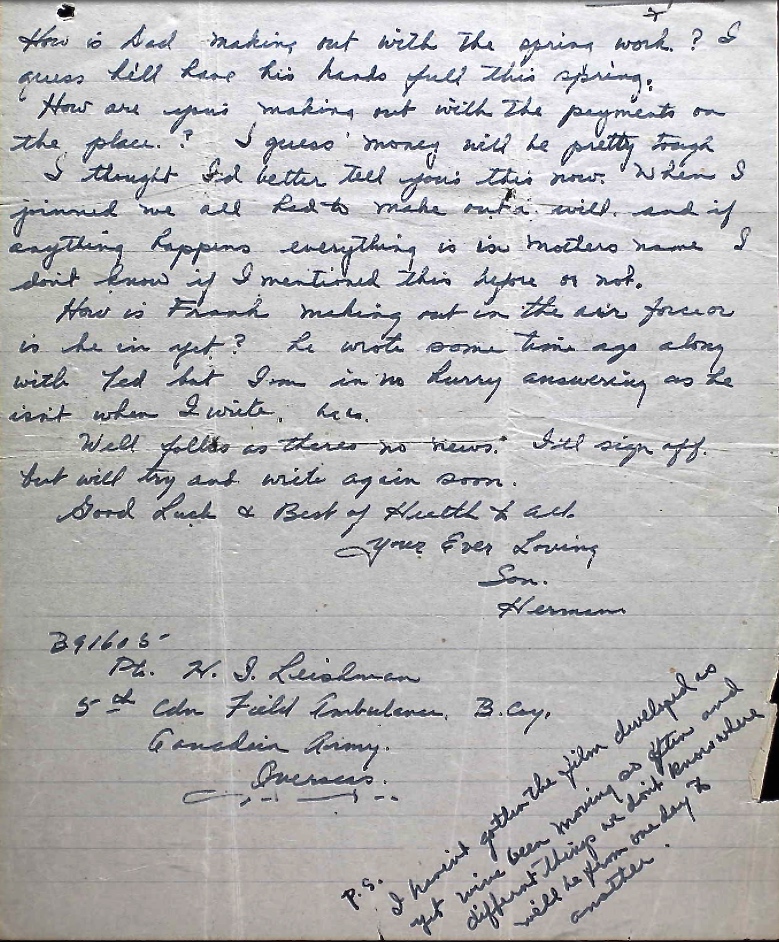 How is Dad making out with the spring work.? I
guess he'll have his hands full this spring.
How are yous making out with the payments on
the place.? I guess money will be pretty tough
I thought I'd better tell yous this now. When I
joinned we all had to make out a will. and if
anything happens everything is in mothers name I
don't know if I mentioned this before or not.
How is Frank making out in the air force or
is he in yet? he wrote some time ago along
with Ted but I'm in no hurry answering as he
isnt when I write.
Well folks as theres no news. I'll sign off.
but will try and write again soon.
Good Luck & Best of Health & all.
Your Ever Loving
Son.
Herman
B91605
Pte. H. I. Leishman
5th Cdn Field Ambulance. B. Coy.
Canadian Army.
Overseas.
P.S.
I haven't gotten the film developed as
yet we've been moving so often and
different things we don't know where
we'll be from one day to
another.